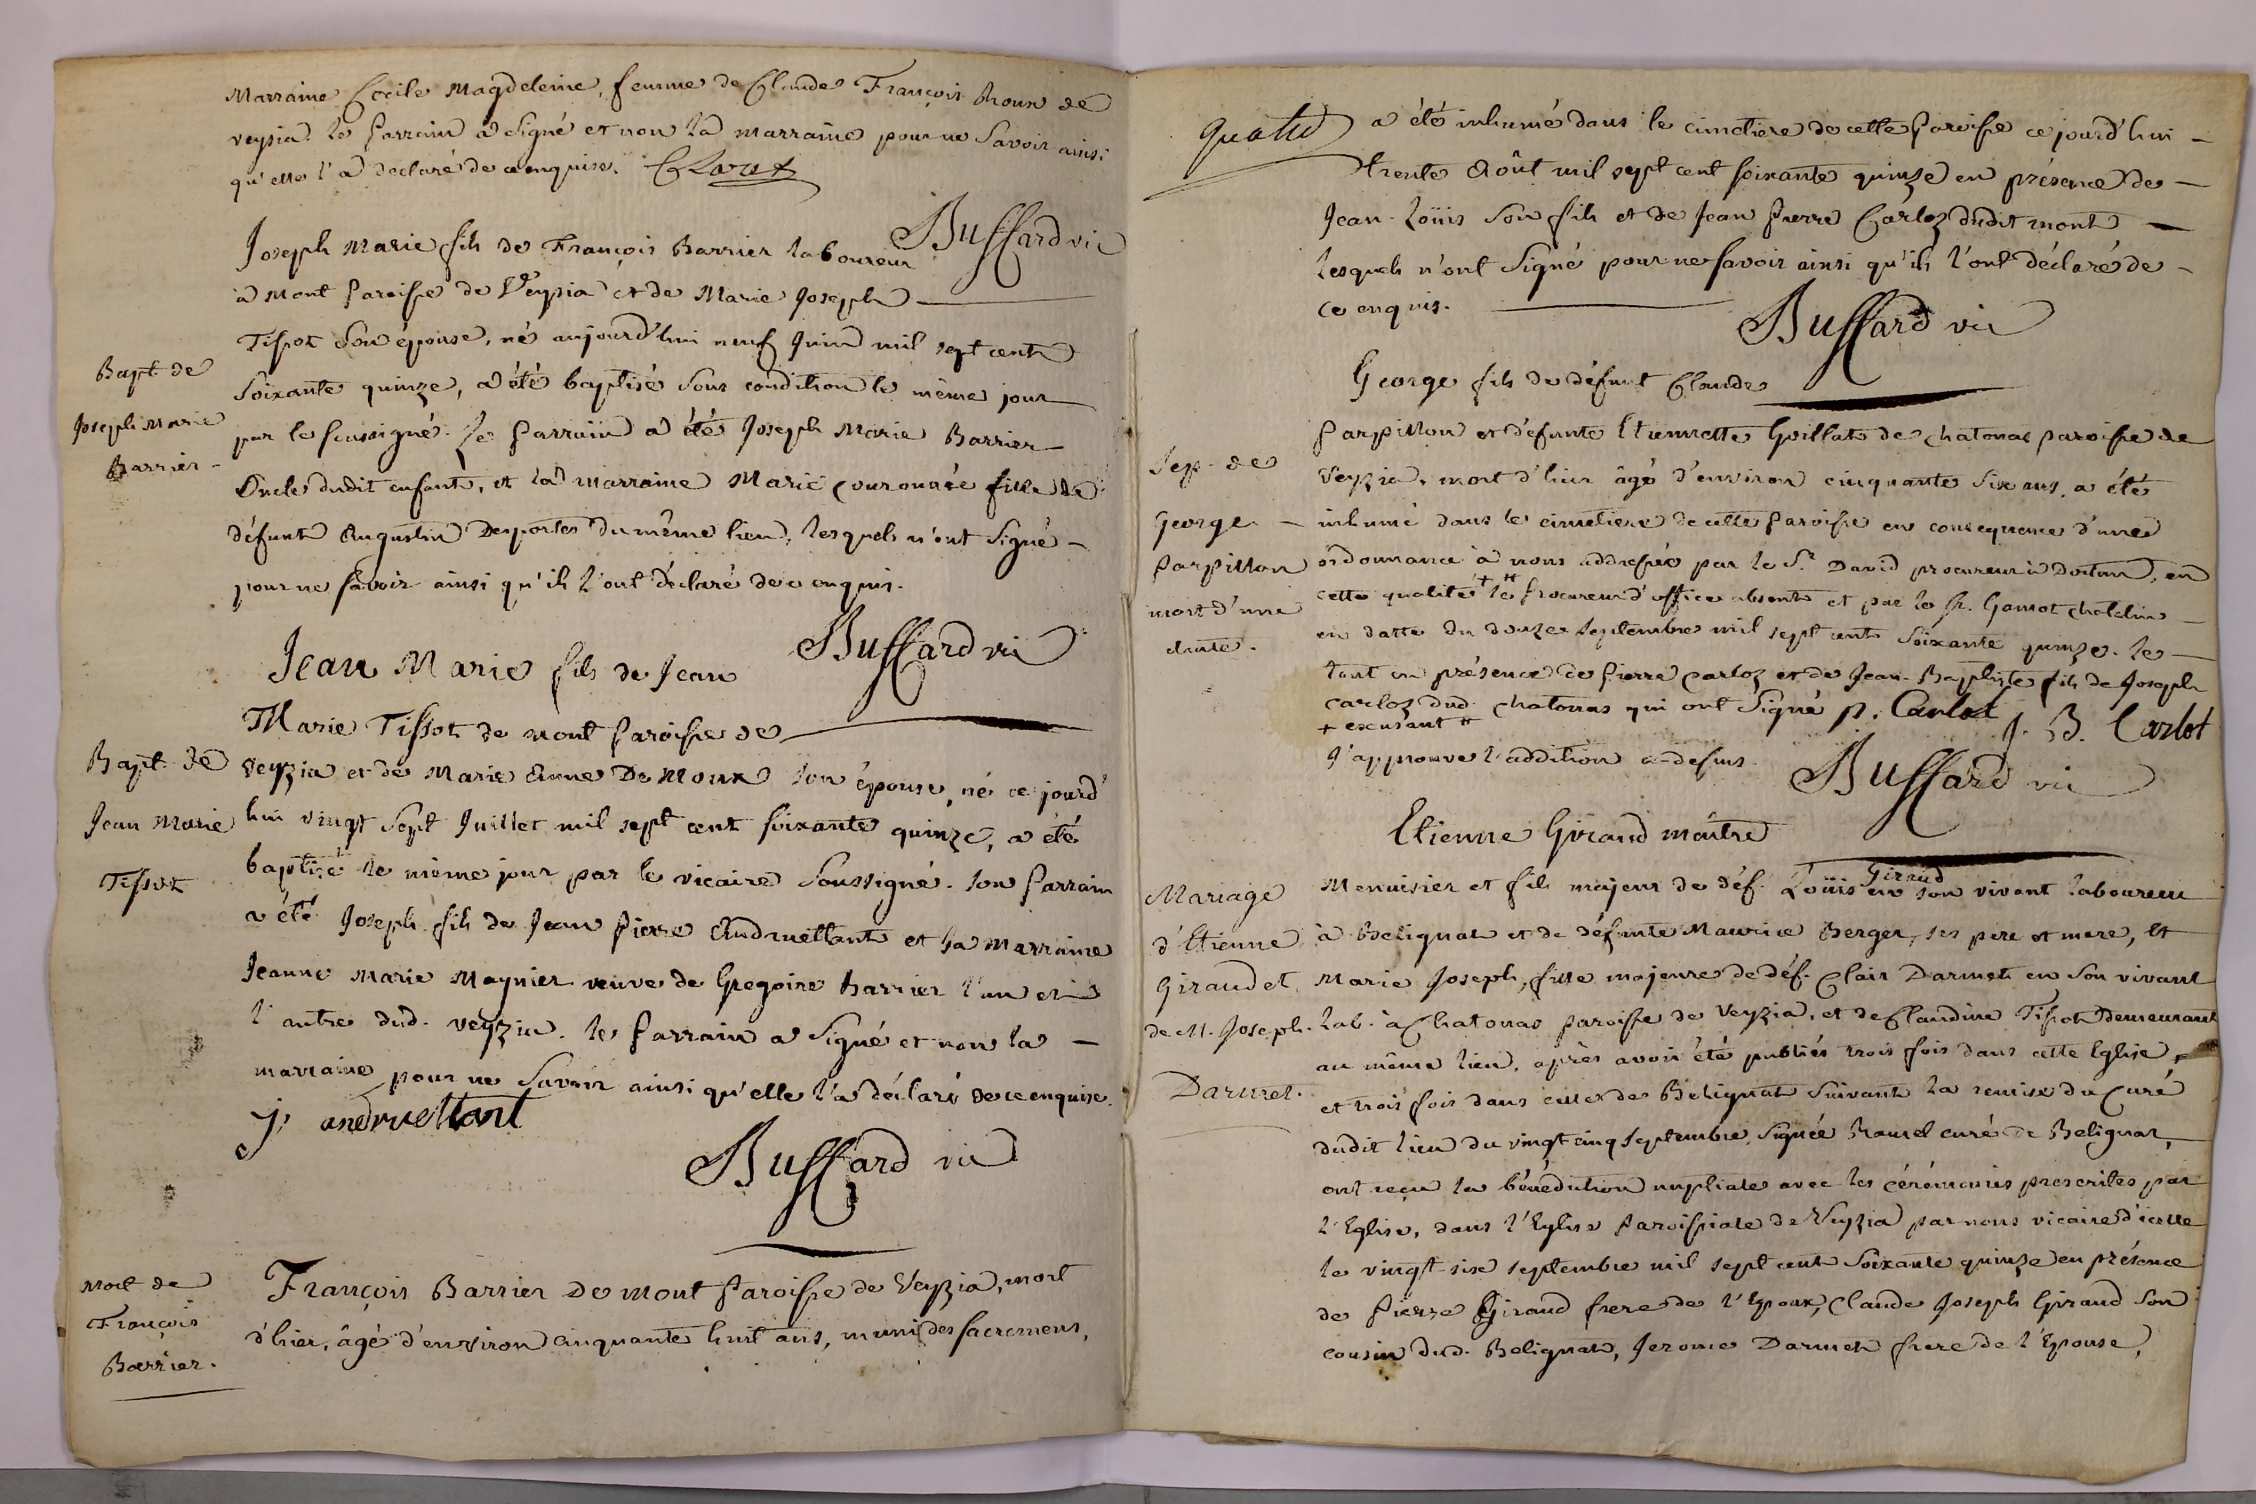 Marraine Cecile Magdeleine, femme de Claude François Roux de
veyzia. le Parrain a signé et non la marraine pour ne savoir ainsi
qu'elle l'a declaré de ce enquise.
Buffard vic
Bapt. de
Joseph Marie
Barrier
Joseph Marie fils de François Barrier laboureur
à Mont Paroisse de Veyzia et de Marie Joseph
Tissot son épouse, né aujourd'hui neuf Juin mil sept cent
soixante quinze, a été baptisé sous condition le même jour
par le soussigné. Le Parrain a été Joseph Marie Barrier
Oncle dudit enfant, et la marraine Marie Couronnée fille de
défunt Augustin Desportes du même lieu, lesquels n'ont signé
pour ne savoir ainsi qu'ils l'ont déclaré de ce enquis.
Buffard vic
Bapt. de
Jean Marie
Tissot
Jean Marie fils de Jean
Marie Tissot de Mont Paroisse de
Veyzia et de Marie Anne De Moux son épouse, né ce jourd'
hui vingt sept Juillet mil sept cent soixante quinze, a été
baptisé le même jour par le vicaire soussigné. son Parrain
a été Joseph fils de Jean Pierre Andruettant et la Marraine
Jeanne Marie Maynier veuve de Gregoire barrier l'un et
l'autre dud. veyzia. le Parrain a signé et non la
marraine pour ne savoir ainsi qu'elle l'a déclaré de ce enquise.
J. andruettant
Buffard vic
Mort de
François
Barrier.
François Barrier De Mont Paroisse de Veyzia, mort
d'hier, âgé d'environ cinquante huit ans, muni des sacremens,
quatre
a été inhumé dans le cimetiere de cette Paroisse ce jourd'hui
trente Août mil sept cent soixante quinze en présence de
Jean-Loüis son fils et de Jean Pierre Carloz dudit mont
lesquels n'ont signé pour ne savoir ainsi qu'ils l'ont déclaré de
ce enquis.
Buffard vic
Sep. de
George
Parpillon
mort d'une
chute.
George fils de défunt Claude
Parpillon et défunte Etiennette Goillat de chatonas paroisse de
Veyzia, mort d'hier âgé d'environ cinquante six ans, a été
inhumé dans le cimetiere de cette Paroisse en consequence d'une
ordonnance à nous addressée par le Sr. David procureur à Dortan, en
cette qualité + # le Procureur d'office absent et par le Sr. Gamot chatelin
en datte du douze septembre mil sept cent soixante quinze. le
tout en présence de Pierre Carloz et de Jean-Baptiste fils de Joseph
Carloz dud. chatonas qui ont signé p. Carlot J. B. Carlot
+ excusant #
J'approuve l'addition ci-dessus.
Buffard vic
Mariage
d'Etienne
Giraud et
de M. Joseph
Darmet.
Etienne Giraud maître
Menuisier et fils majeur de déf. Loüis Giraud en son vivant laboureur
à Belignat et de défunte Maurice Berger, ses pere et mere, Et
Marie Joseph, fille majeure de déf. Clair Darmet en son vivant
lab. à Chatonas paroisse de Veyzia, et de Claudine Tissot demeurant
au même lieu, après avoir été publiés trois fois dans cette Eglise,
et trois fois dans celle de Bélignat suivant la remise du Curé
dudit lieu du vingt cinq septembre, signée Ravul curé de Belignat,
ont reçu la bénédiction nuptiale avec les cérémonies prescrites par
l'Eglise, dans l'Eglise Paroissiale de Veyzia par nous vicaire d'icelle
le vingt-six septembre mil sept cent soixante quinze en présence
de Pierre Giraud frere de l'Epoux, Claude Joseph Giraud son
cousin dud. Belignat, Jerome Darmet frere de l'Epouse,